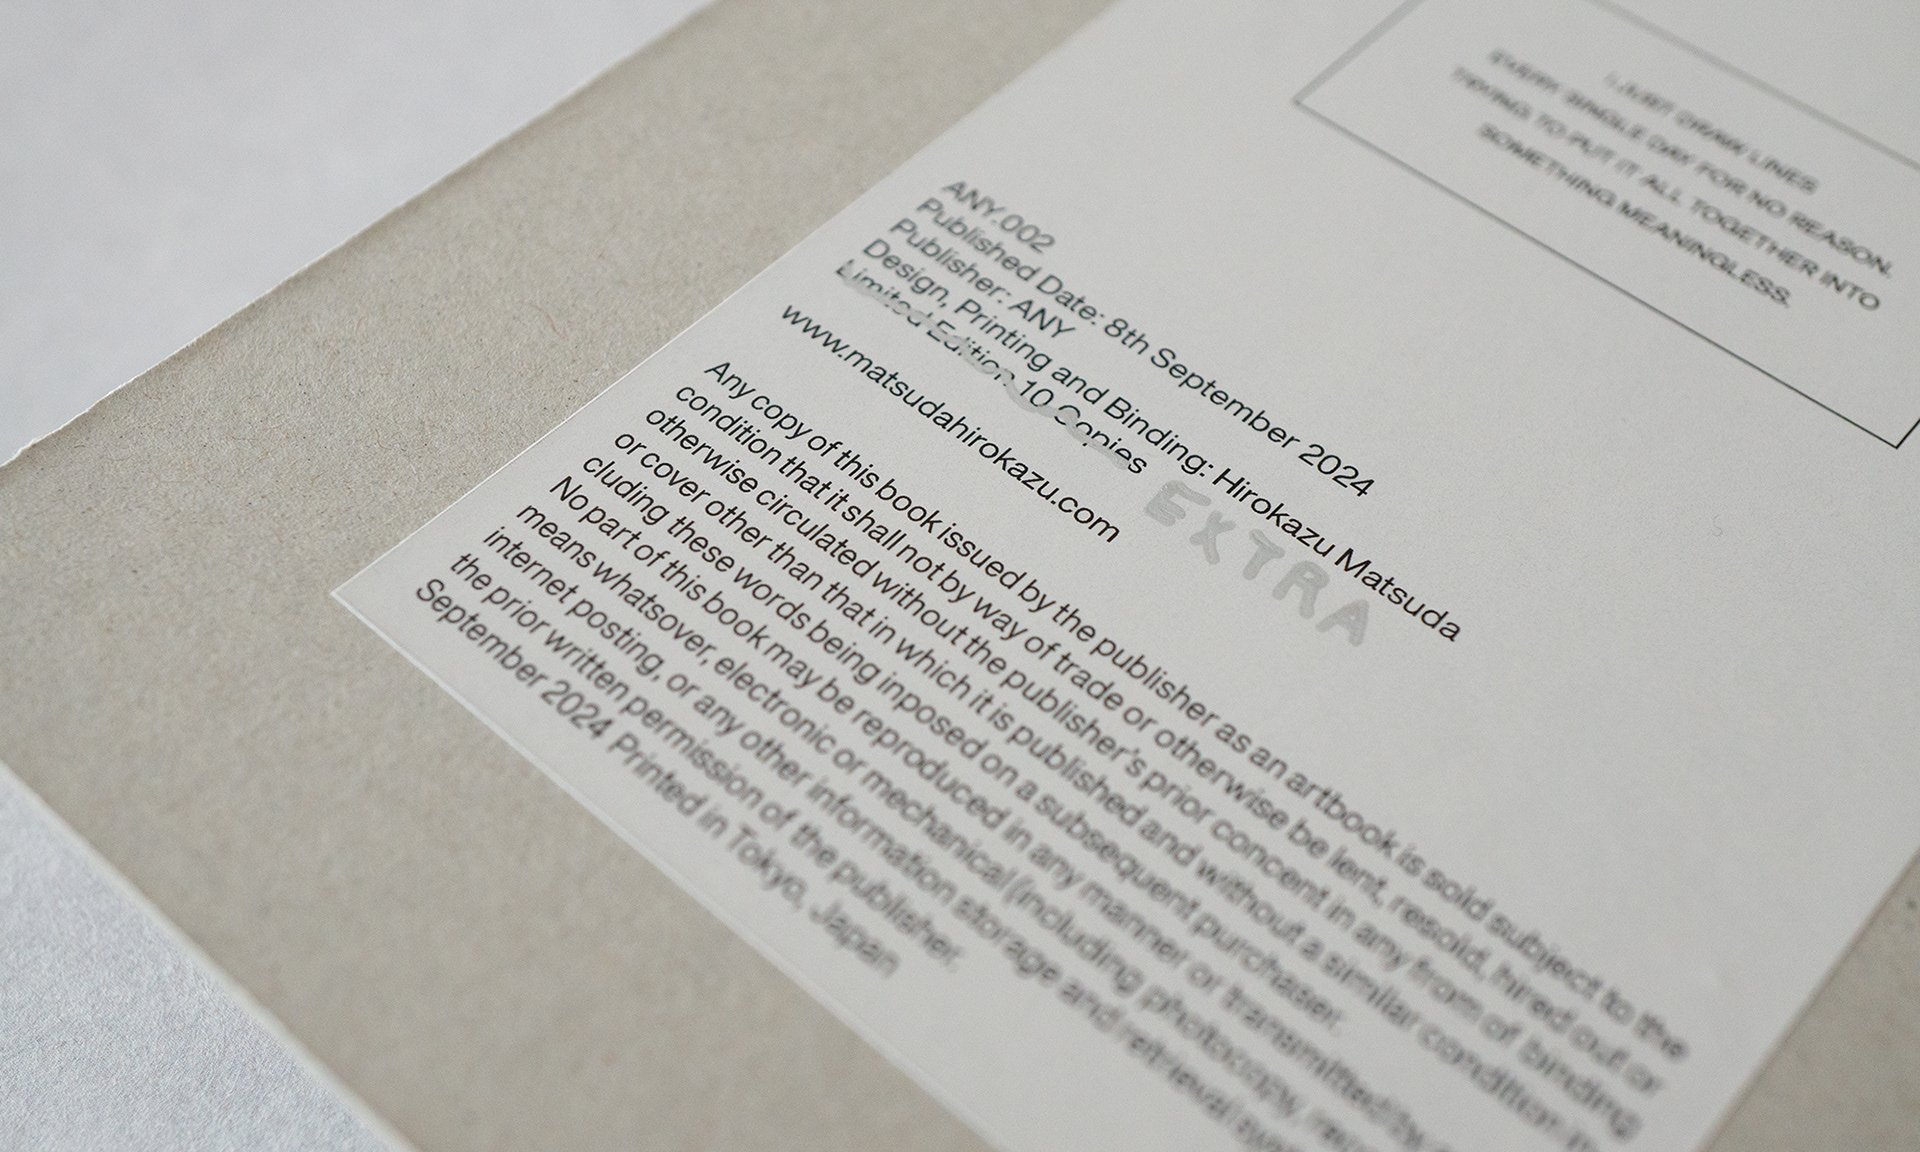 I JUST DRAW LINES
EVERY SINGLE DAY FOR NO REASON.
TRYING TO PUT IT ALL TOGETHER INTO
SOMETHING MEANINGLESS.
ANY.002
Published Date: 8th September 2024
Publisher: ANY
Design, Printing and Binding: Hirokazu Matsuda
Limited Edition 10 Copies
EXTRA
www.matsudahirokazu.com
Any copy of this book issued by the publisher as an artbook is sold subject to the
condition that it shall not by way of trade or otherwise be lent, resold, hired out or
otherwise circulated without the publisher's prior concent in any from of binding
or cover other than that in which it is published and without a similar condition in
cluding these words being inposed on a subsequent purchaser.
No part of this book may be reproduced in any manner or transmitted by
means whatsover, electronic or mechanical (including photocopy,
internet posting, or any other information storage and retrieval
the prior written permission of the publisher.
September 2024 Printed in Tokyo, Japan